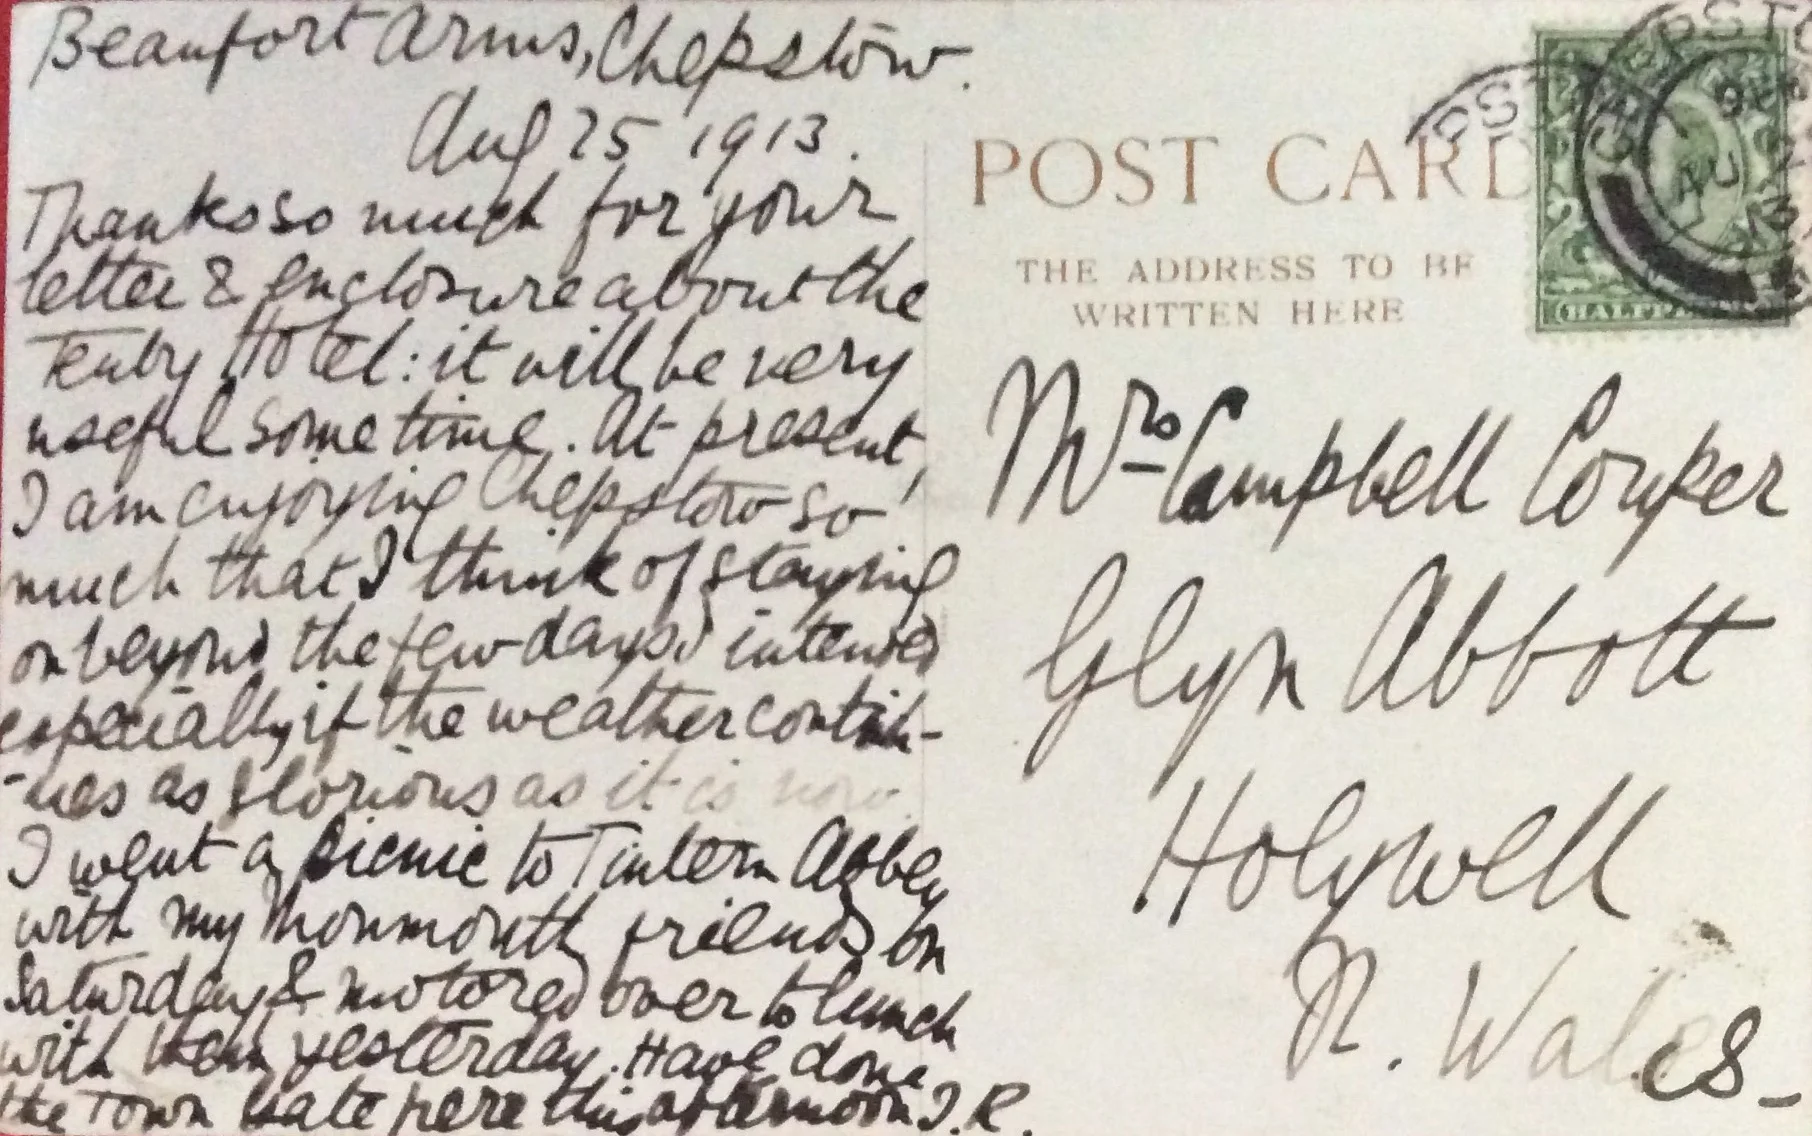 Beaufort Arms, Chepstow.
Aug 25 1913.
Thanks so much for your
letter & enclosure about the
Tenby Hotel: it will be very
useful some time. At present,
I am enjoying Chepstow so
much that I think of staying
on beyond the few days I intended
especially if the weather contin-
-ues as glorious as it is now.
I went a picnic to Tintern Abbey
with my Monmouth friends on
Saturday & motored over to lunch
with them yesterday. Have done
the Town Gate here this afternoon J.R.
POST CARD
THE ADDRESS TO BE
WRITTEN HERE
HALFPENNY
Mrs Campbell Couper
Glyn Abbott
Holywell
N. Wales-